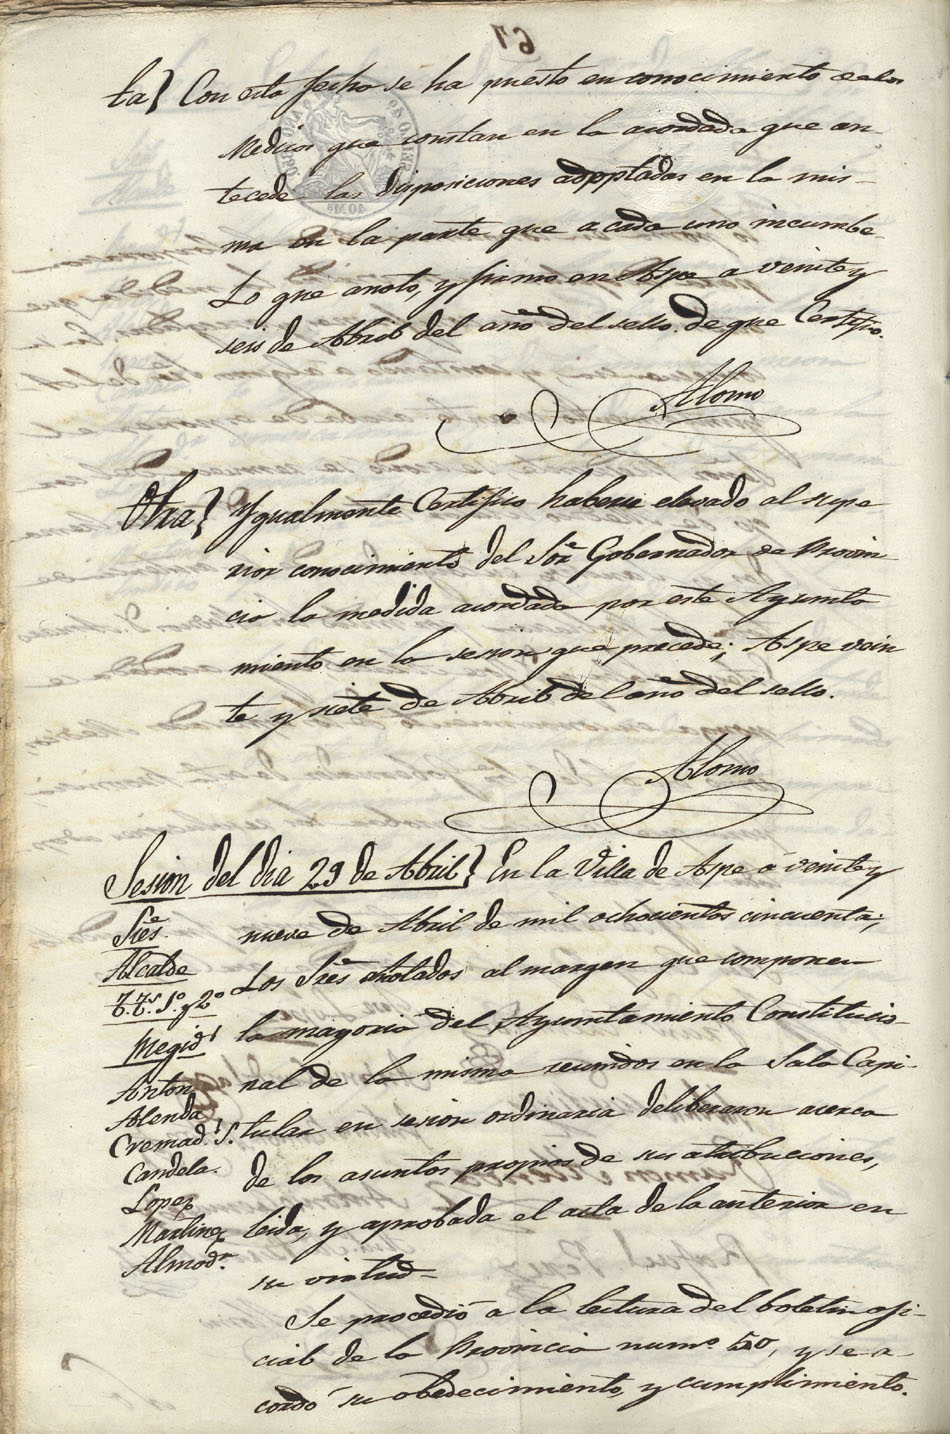 ta} Con esta fecha se ha puesto en conocimiento de los
Medicos que constan en la acordada que an-
tecede las disposiciones adoptadas en la mis-
ma en la parte que a cada uno incumbe
Lo que anoto, y firmo en Aspe a veinte y
seis de Abril del año del sello. de que Certifico.
Alomo
Otra} Ygualmente Certifico haberse elevado al supe
rior conocimiento del Sõr Gobernador de Provin-
cia la medida acordada por este Ayunta
miento en la sesion que precede; Aspe vein
te y siete de Abril del año del sello.
Alomo
Sesion del dia 29 de Abril} En la Villa de Aspe á veinte y
nueve de Abril de mil ochocientos cincuenta;
Los Sres anotados al margen que componen
la mayoria del Ayuntamiento Constitucio-
nal de la misma reunidos en la Sala Capi-
tular en sesion ordinaria deliberaron acerca
de los asuntos propios de sus atribuciones,
leida, y aprobada el acta de la anterior en
su virtud-
Se procedió a la lectura del boletin ofi-
cial de la Provincia numº 50, y se a-
cordó su obedecimiento, y cumplimiento.
Sres
Alcalde
T.Ts. 1º y 2º
Regids
Anton
Alenda
Cremads.
Candela.
Lopez
Martinez
Almodr.